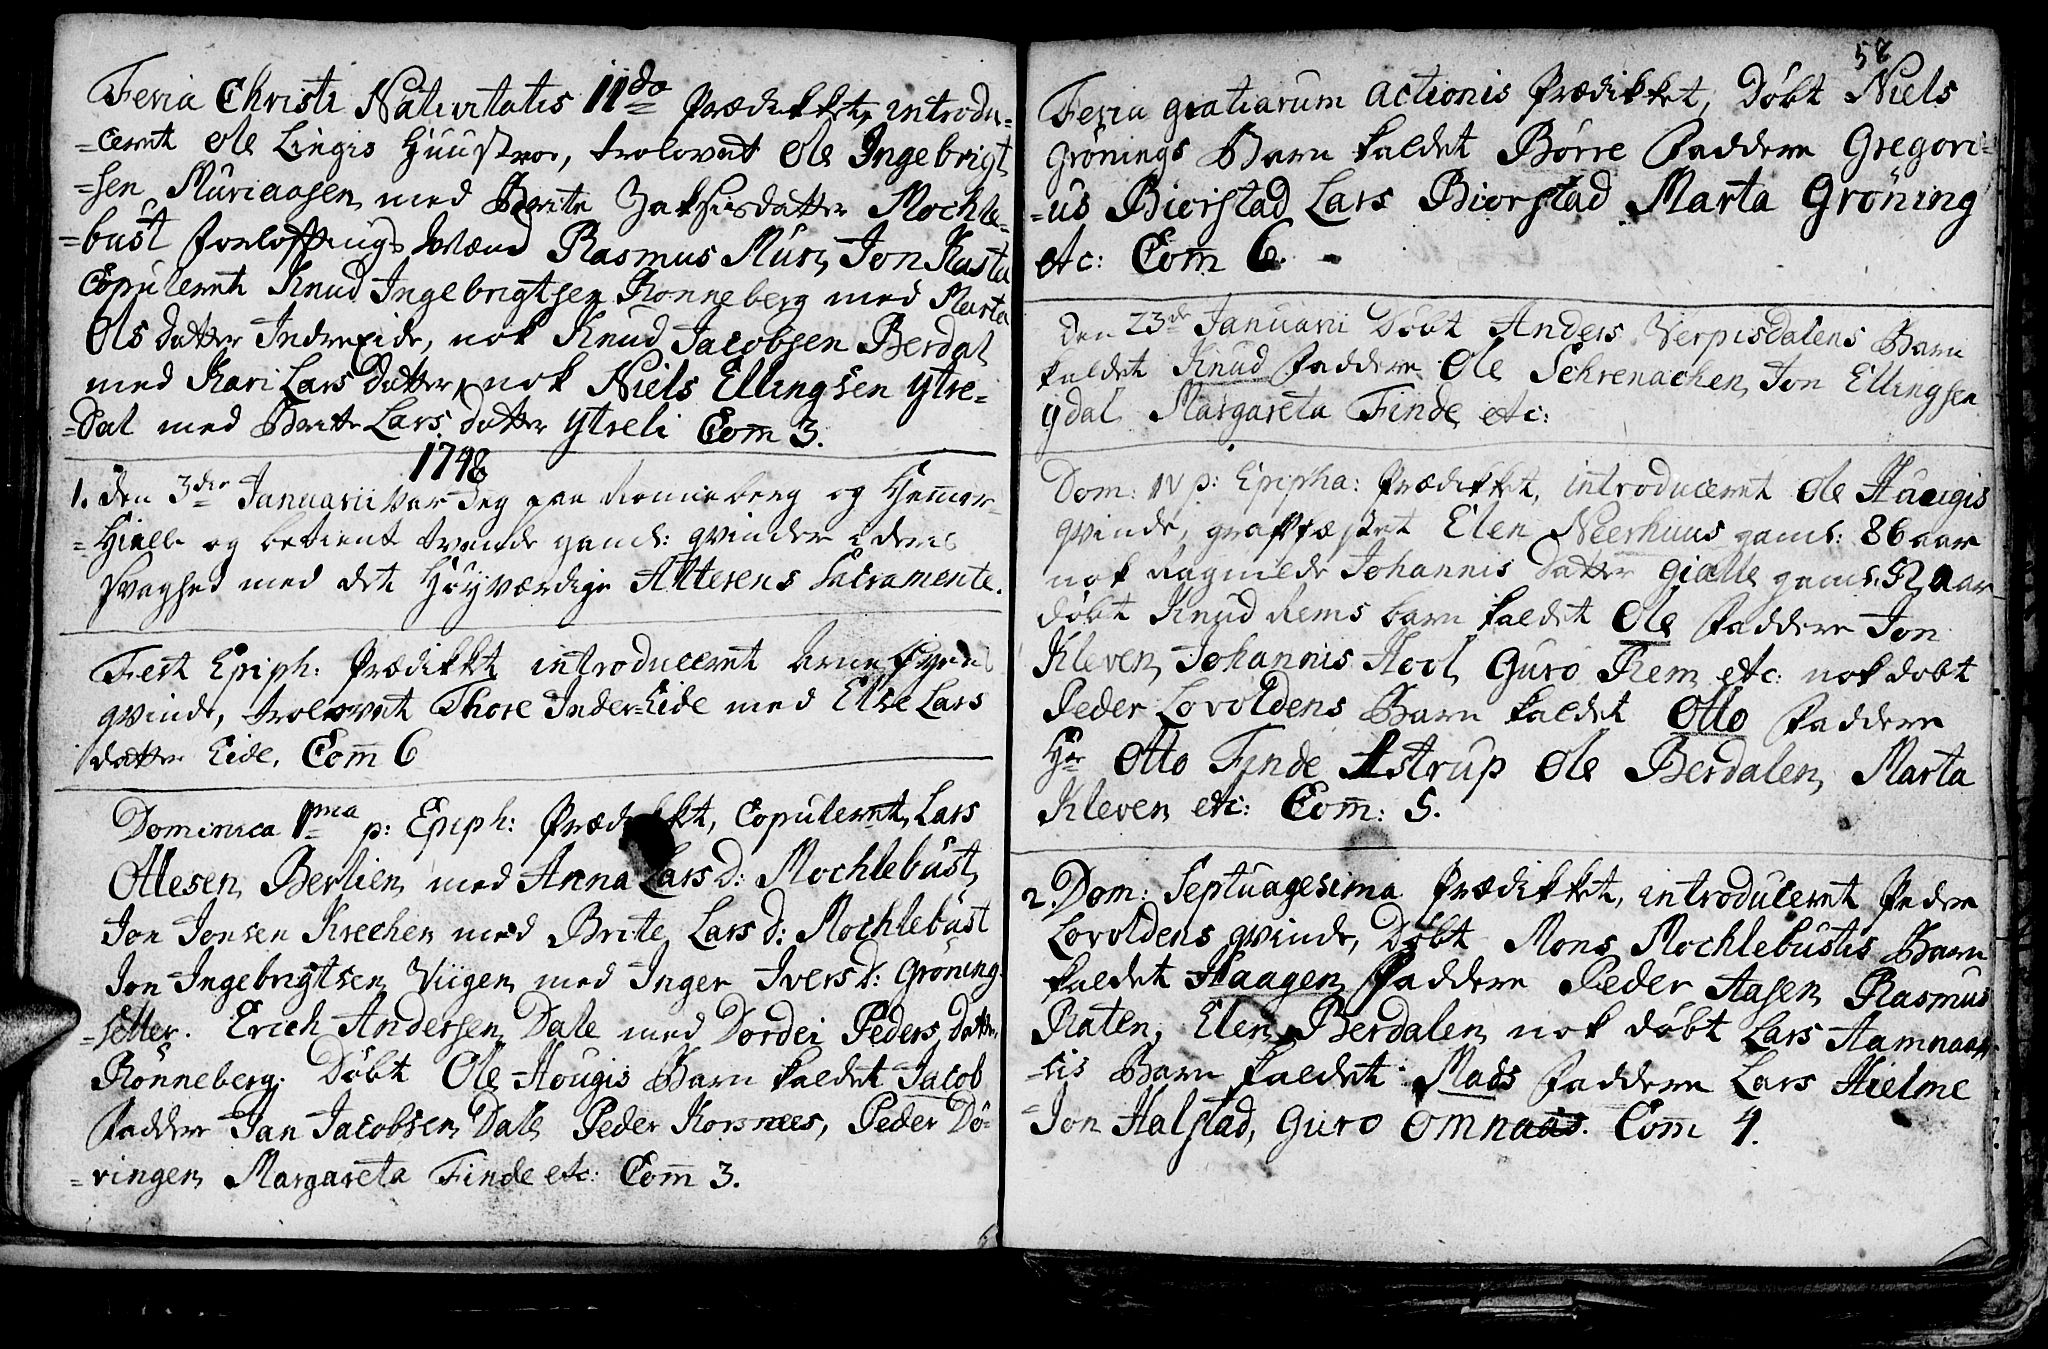 Feria Christi Nativitatis II do Prædikket, introdu-
=cerret Ole Lingis Huustroe, trolovet Ole Ingebrigt
=sen Muriaasen med Berite Jakobsdatter Mochle-
=bust forloffnings Mænd Rasmus Muri, Jon Kasta
Copuleret Knud Ingebrigtsen Ronneberg med Marta
Ols datter Indreeide, nok Knud Jacobsen Berdal
med Kari Lars datter, nok Niels Ellingsen ytre-
=dal med Britte Lars datter ytreli Com 3.
1748
1. den 3die Januarii var Jeg paa Ronneberg og Hemar-
=Hielle og betient tvende gaml: qvinder i deris
svaghed med det Høyværdige Alterens Sacramente.
Fest Epiph: Prædikket introduceret Arne
qvinde, trolovet Thore Inder-Eide med Else Lars
datter Eide, Com 6
Dominica 1ma p: Epiph: Prædikket, Copuleret, Lars
Ollesen Berlien med Anna Lars d: Mochlebust,
Jon Jonsen Krechen med Brite Lars d: Mochlebust
Jon Ingebrigtsen Viigen med Inger Ivers d: Gröning
=setter. Erich Andersen Dale med Dordei Peders datter
Rönneberg. Döbt Ole Hougis Barn kaldet Jacob
faddere Jan Jacobsen Dale Peder Korsnees, Peder Dö-
=ringen Margareta Finde etc: Com 3.
58
Feria gratiarum actionis Prædikket, Döbt Niels
Grönings Barn kaldet Börre faddere Gregori-
=us Biorstad Lars Biorstad Marta Gröning
etc: Com 6.
den 23de Januarii Döbt Anders Verpisdalens Barn
kaldet Knud faddere Ole Schrenachen, Jon Ellingsen
ydal Margareta Finde etc:
Dom: IV p: Epipha: Prædikket, introduceret Ole Haugis
qvinde, graffæstet Elen Neerhuus gaml: 86 aar
nok Ragnilde Johannis datter Gialle gaml: 52 aar
döbt Knud Rems barn kaldet Ole faddere Jon
Kleven, Johannis Hool, Guro Rem etc: nok dobt
Peder Lovoldens Barn kaldet Otto faddere
Hr Otto Finde Astrup Ole Berdalen, Marta
Kleven etc: Com: 5.
2. Dom: Septuagesima Prædikket, introduceret Peder
Lovoldens qvinde, Döbt Mons Mochlebustis Barn
kaldet Haagen faddere Peder Aasen Rasmus
Raten, Elen Berdalen nok döbt Lars Hamnaas-
=sis Barn kaldet Mads faddere Lars Hielme
Jon Halstad, Guro Omnaas. Com 4.